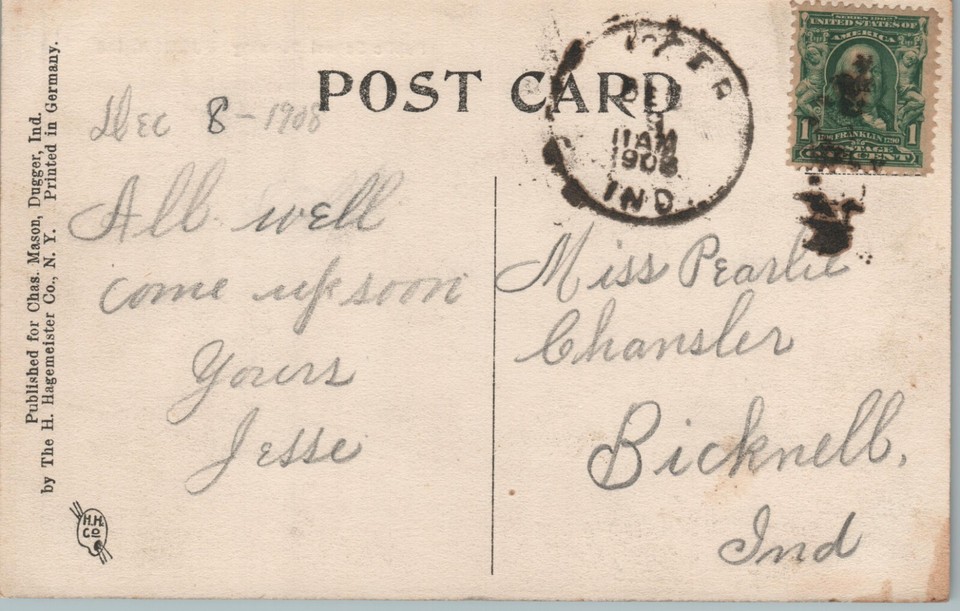 POST CARD
Dec 8 - 1908
All well
come up soon
Yours
Jesse
Miss Pearlie
Chansler
Bicknell,
Ind
Published for Chas. Mason, Dugger, Ind.
by The H. Hagemeister Co., N. Y. Printed in Germany.
H.H.
Co
11 AM
1908
IND.
SERIES 1902
UNITED STATES OF
AMERICA
1 FRANKLIN 1790
POSTAGE
CENT